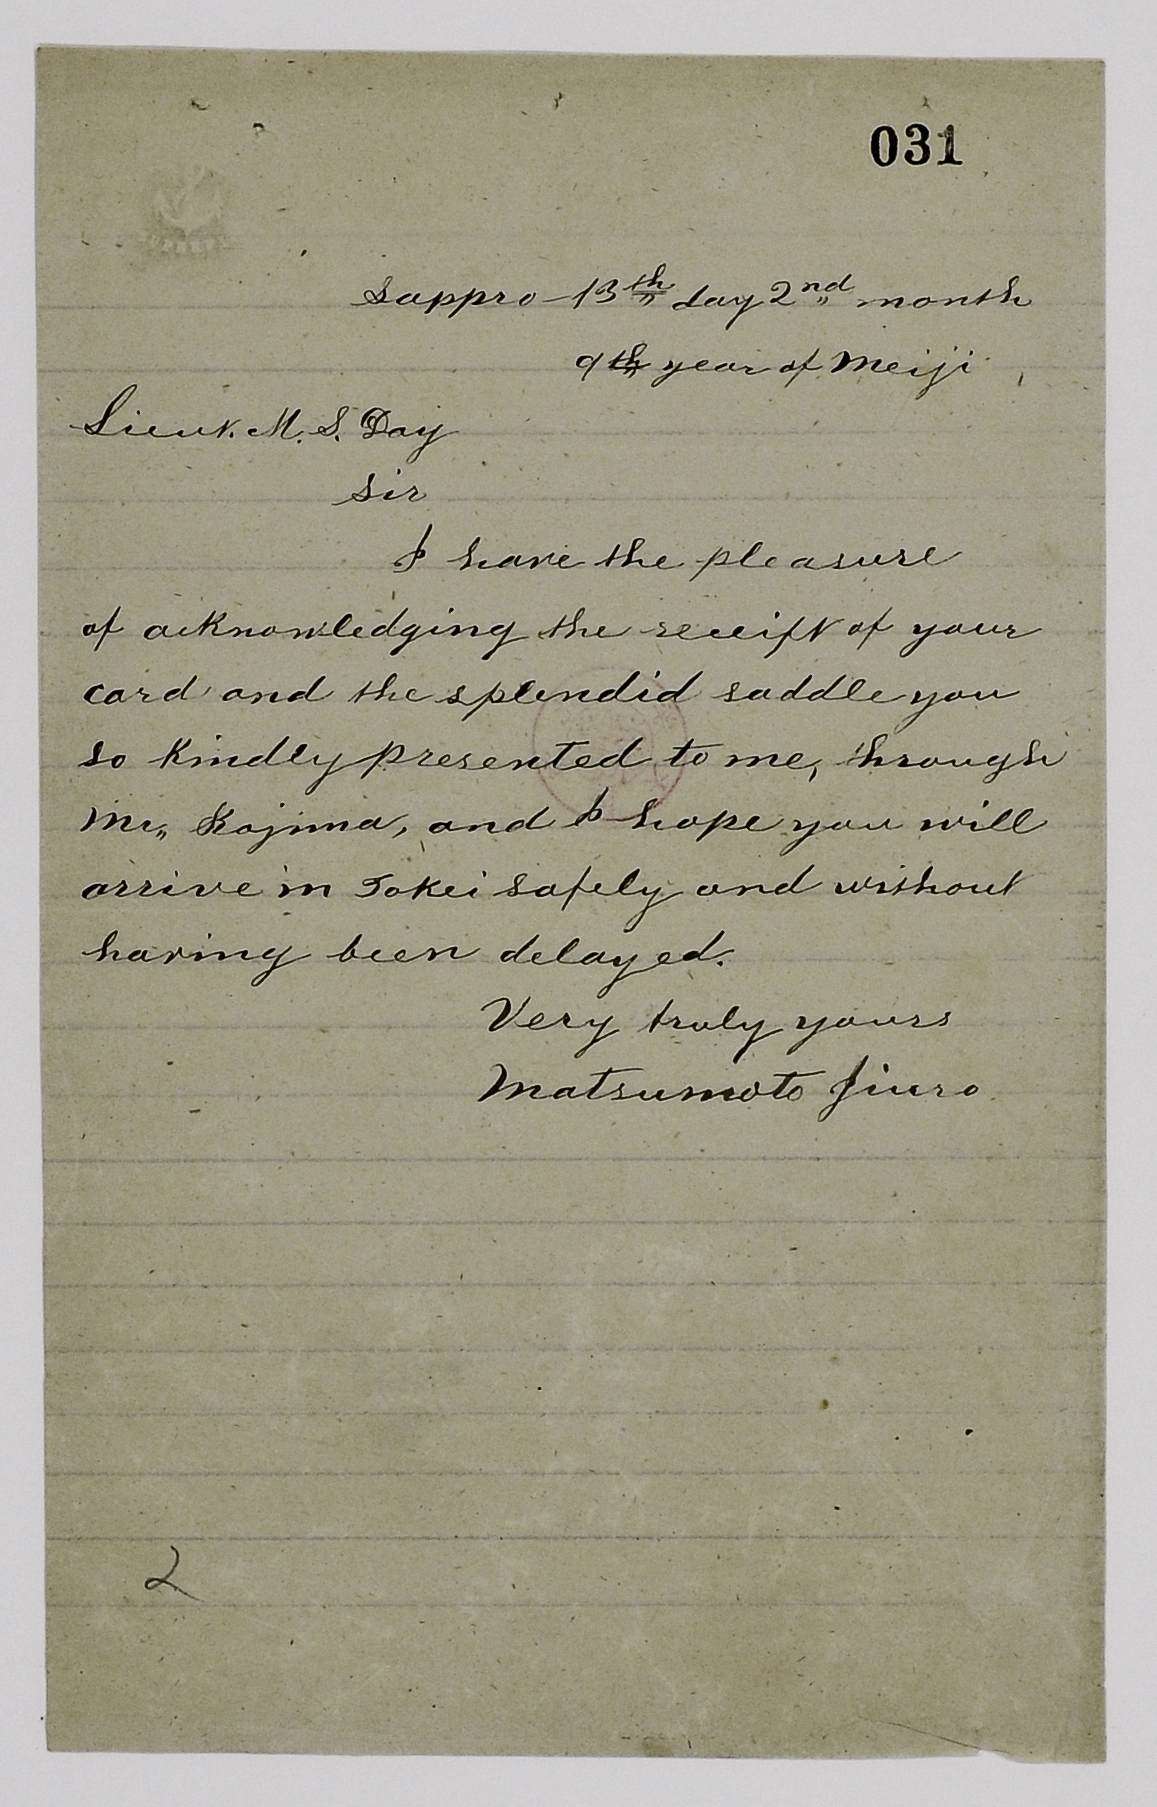 031
Sappro 13th day 2nd month
9th year of Meiji
Lieut. M. S. Day
Sir
I have the pleasure
of acknowledging the receipt of your
card and the splendid saddle you
so kindly presented to me, through
Mr,, Kojima, and I hope you will
arrive in Tokei safely and without
having been delayed.
Very truly yours
Matsumoto Jiuro
2